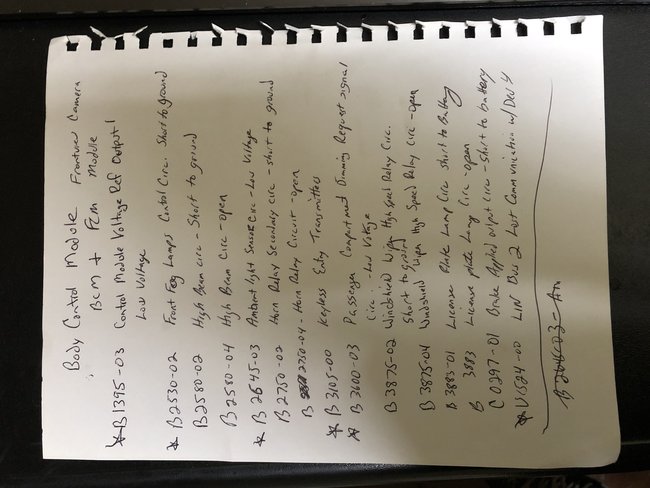 Body Control Module Frontview Camera
BCM + FCM Module
* B1395-03 Control Module Voltage Ref Output 1
Low Voltage
* B2530-02 Front Fog Lamps Control Circ. Short to ground
B2580-02 High Beam circ - Short to ground
B2580-04 High Beam Circ - open
* B2645-03 Ambient light Sensor Circ - Low Voltage
B2750-02 Horn Relay Secondary circ - short to ground
B 2750-04 - Horn Relay Circuit - open
* B3105-00 Keyless Entry Transmitters
* B3600-03 Passenger Compartment Dimming Request signal
Circ. - Low Voltage
B3875-02 Windshield Wiper High Speed Relay Circ.
Short to ground
B3875-04 Windshield Wiper High Speed Relay circ - open
B3883-01 License Plate Lamp Circ Short to Battery
B 3883 License plate Lamp Circ - open
C0297-01 Brake Applied output circ - Short to battery
* U1524-00 LIN Bus 2 Lost Communication w/Dev 4